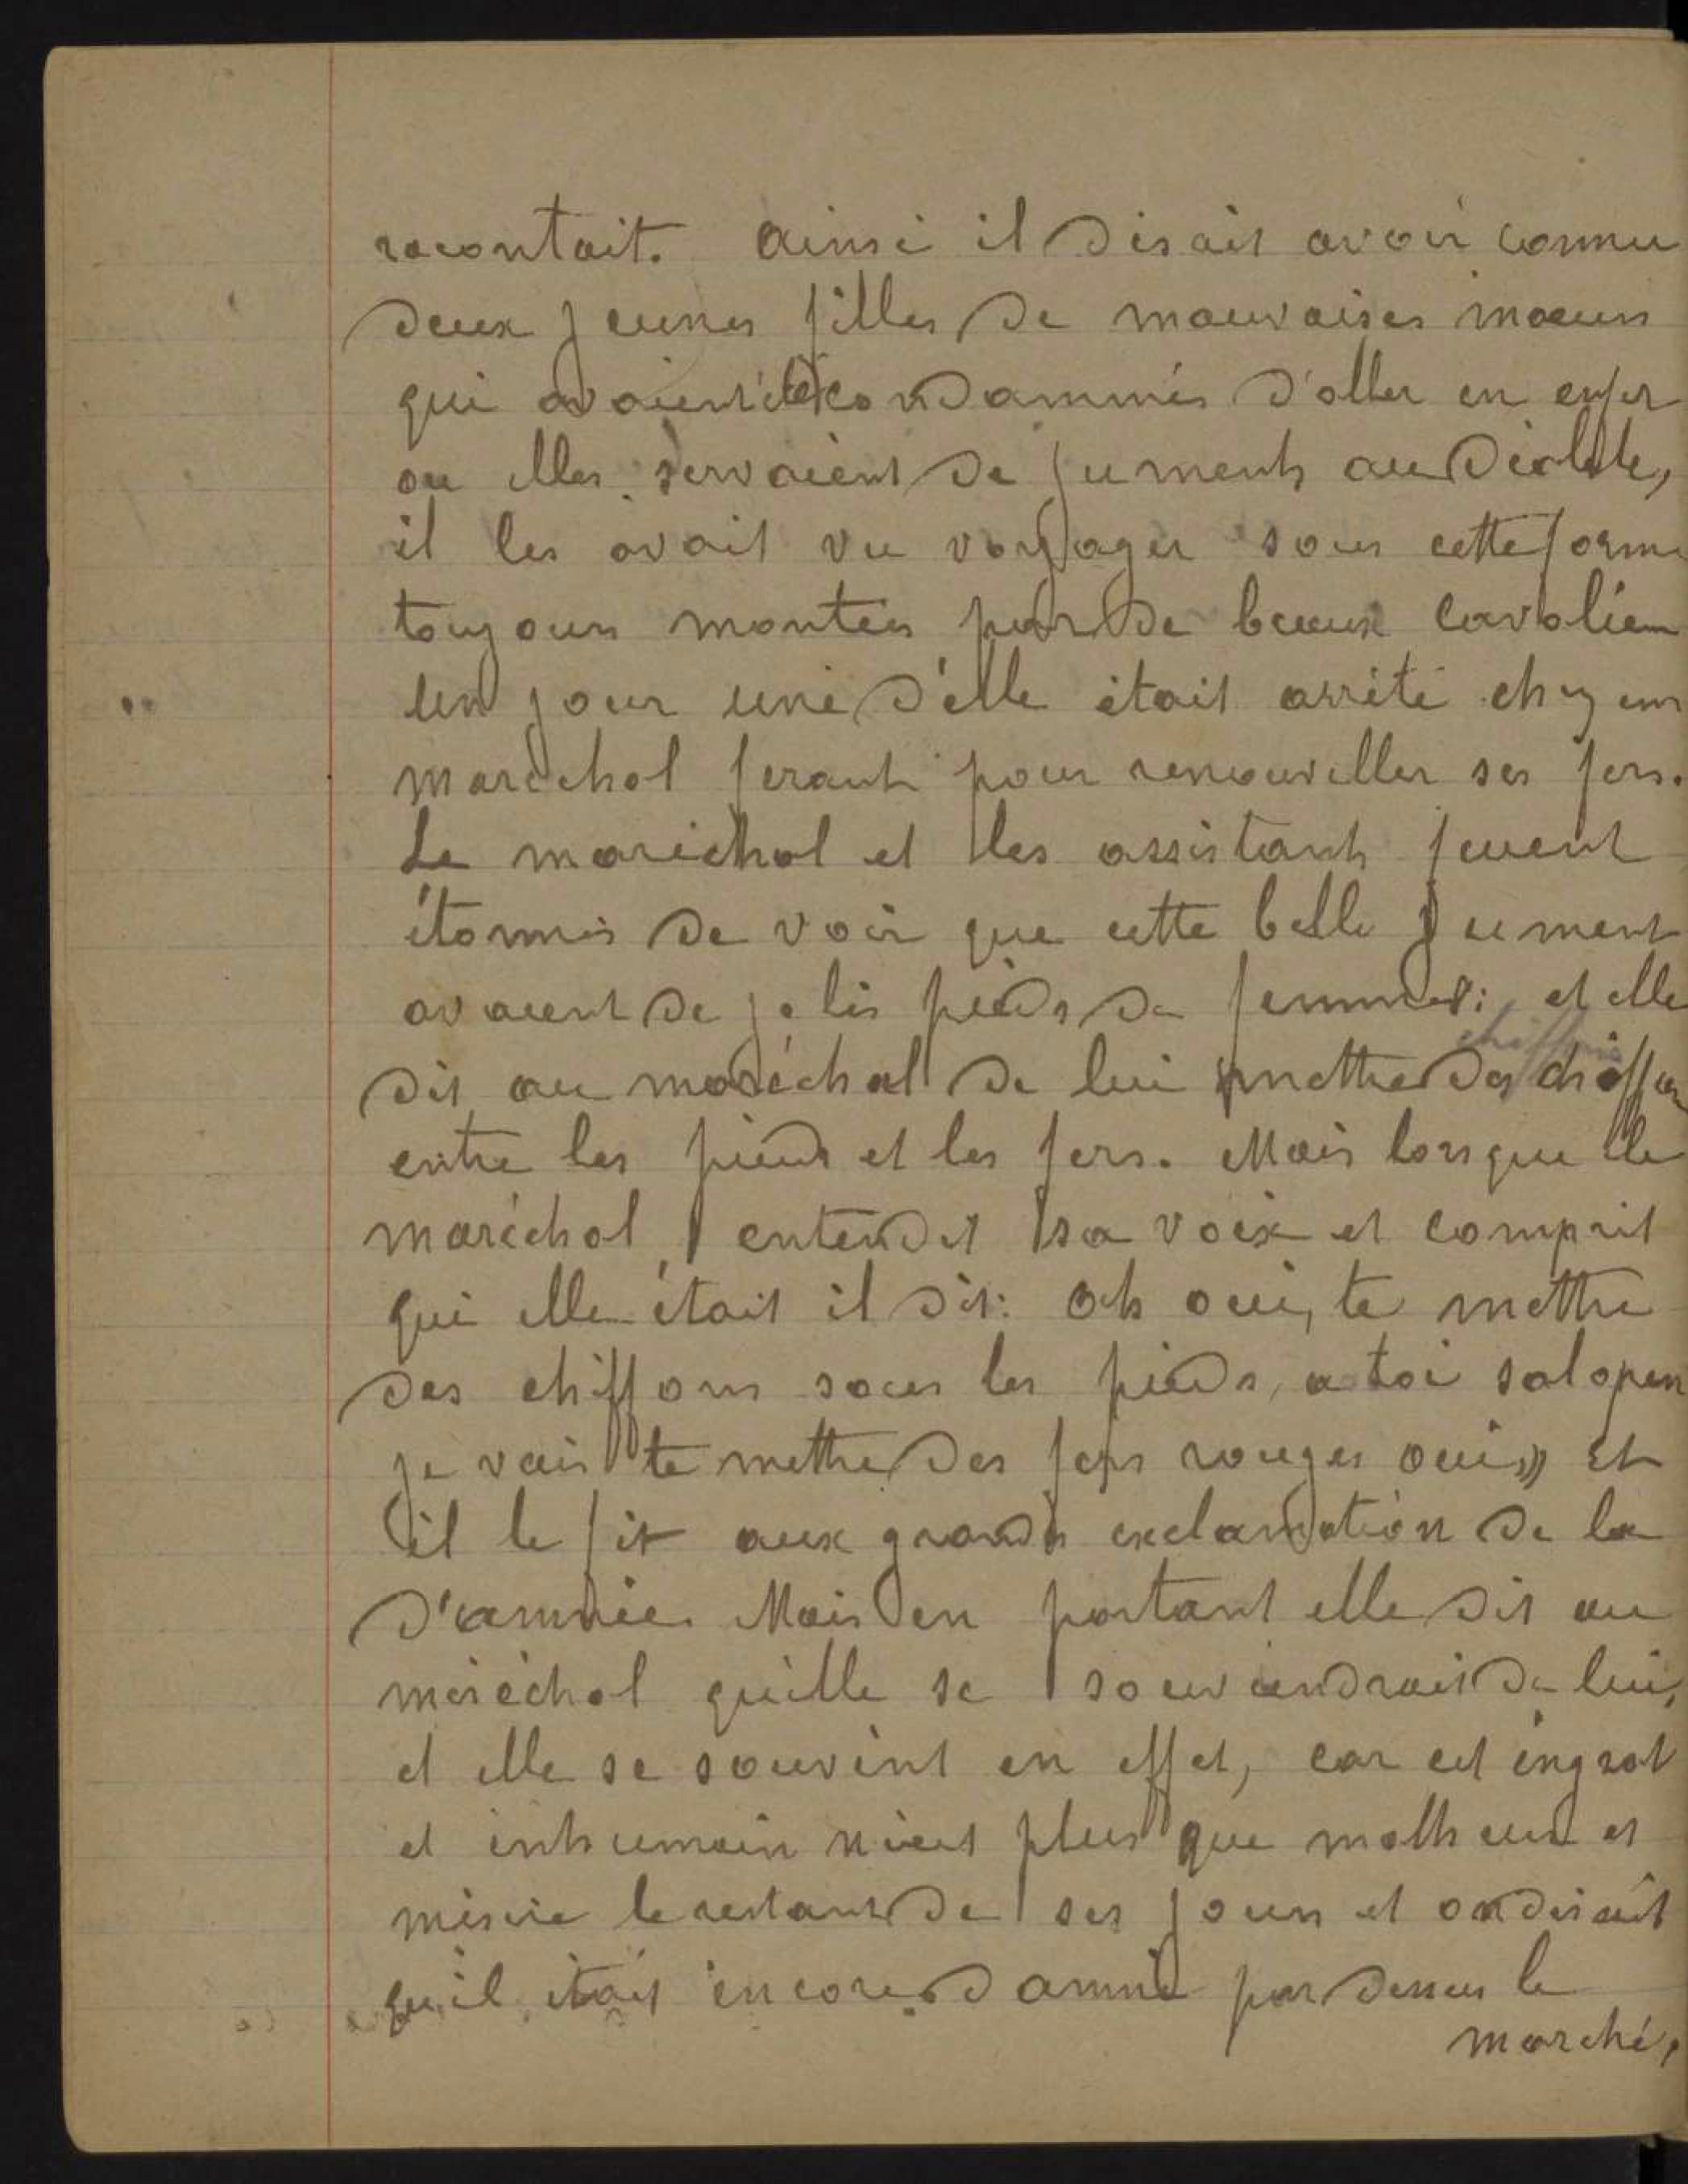 racontait. Ainsi il disait avoir connu
deux jeunes filles de mauvaises moeurs
qui avaient été condammés d'aller en enfer
ou elles servaient de juments au diable,
il les avait vu voyager sous cette forme
toujours montées par de beaux cavaliers
un jour une d'elle était arrêté chez un
maréchal ferant pour renouveller ses fers.
Le maréchal et les assistants furent
étonnés de voir que cette belle jument
avaient de jolis pieds de femmes; et elle
dit au maréchal de lui mettre des chiffons
entre les pieds et les fers. Mais lorsque le
maréchal entendit sa voix et comprit
qui elle était il dit: Oh oui, te mettre
des chiffons sous les pieds, a toi salopen
je vais te mettre des fers rouges oui» Et
il le fit aux grands exclamation de la
d'amnée. Mais en partant elle dit au
maréchal quelle se souviendrait de lui,
et elle se souvint en effet, car cet ingrat
et inhumain n'eut plus que malheur et
misère le restant de ses jours et on disait
qu'il était encore damné par dessus le
marché,